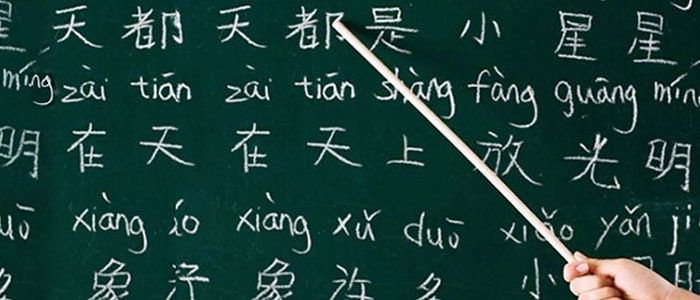 星 天 都 天 都 是 小 星 星
míng zài tiān zài tiān shàng fàng guāng mín
明 在 天 在 天 上 放 光 明
uō xiàng xiàng xǔ duō xiǎo yǎn j
象 象 许 多 小